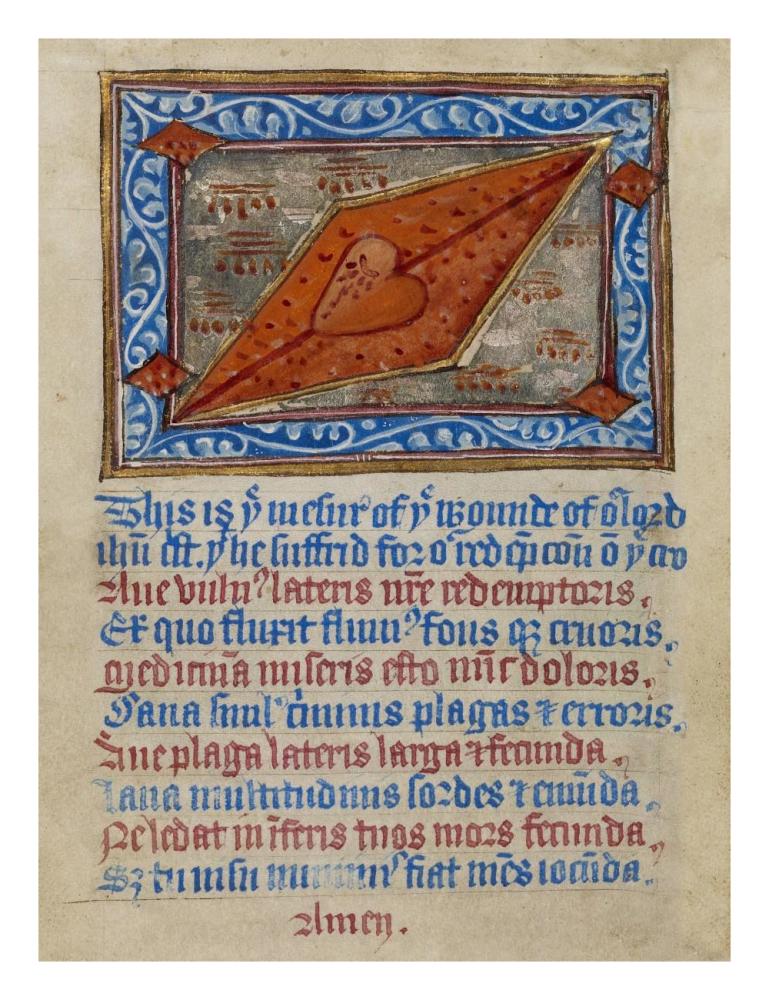 This is yͤ mesure of yͤ wounde of oͬ lord
ihū c̄st. y he suffrid for oͬ redēpcoū o y cro
Aue vulnꝰ lateris nr̄e redemptoris,
Ex quo fluxit fluuꝰ fons qꝫ cruoris,
Medicina miseris esto doloris,
Sana simul plagas ⁊ erroris,
Aue plaga lateris larga ⁊ fecunda,
Laua multitudinis sordes ⁊ emūda,
Ne ledat īferis tuos mors secunda,
Sꝫ tu fiat mēs iocūda.
Amen.